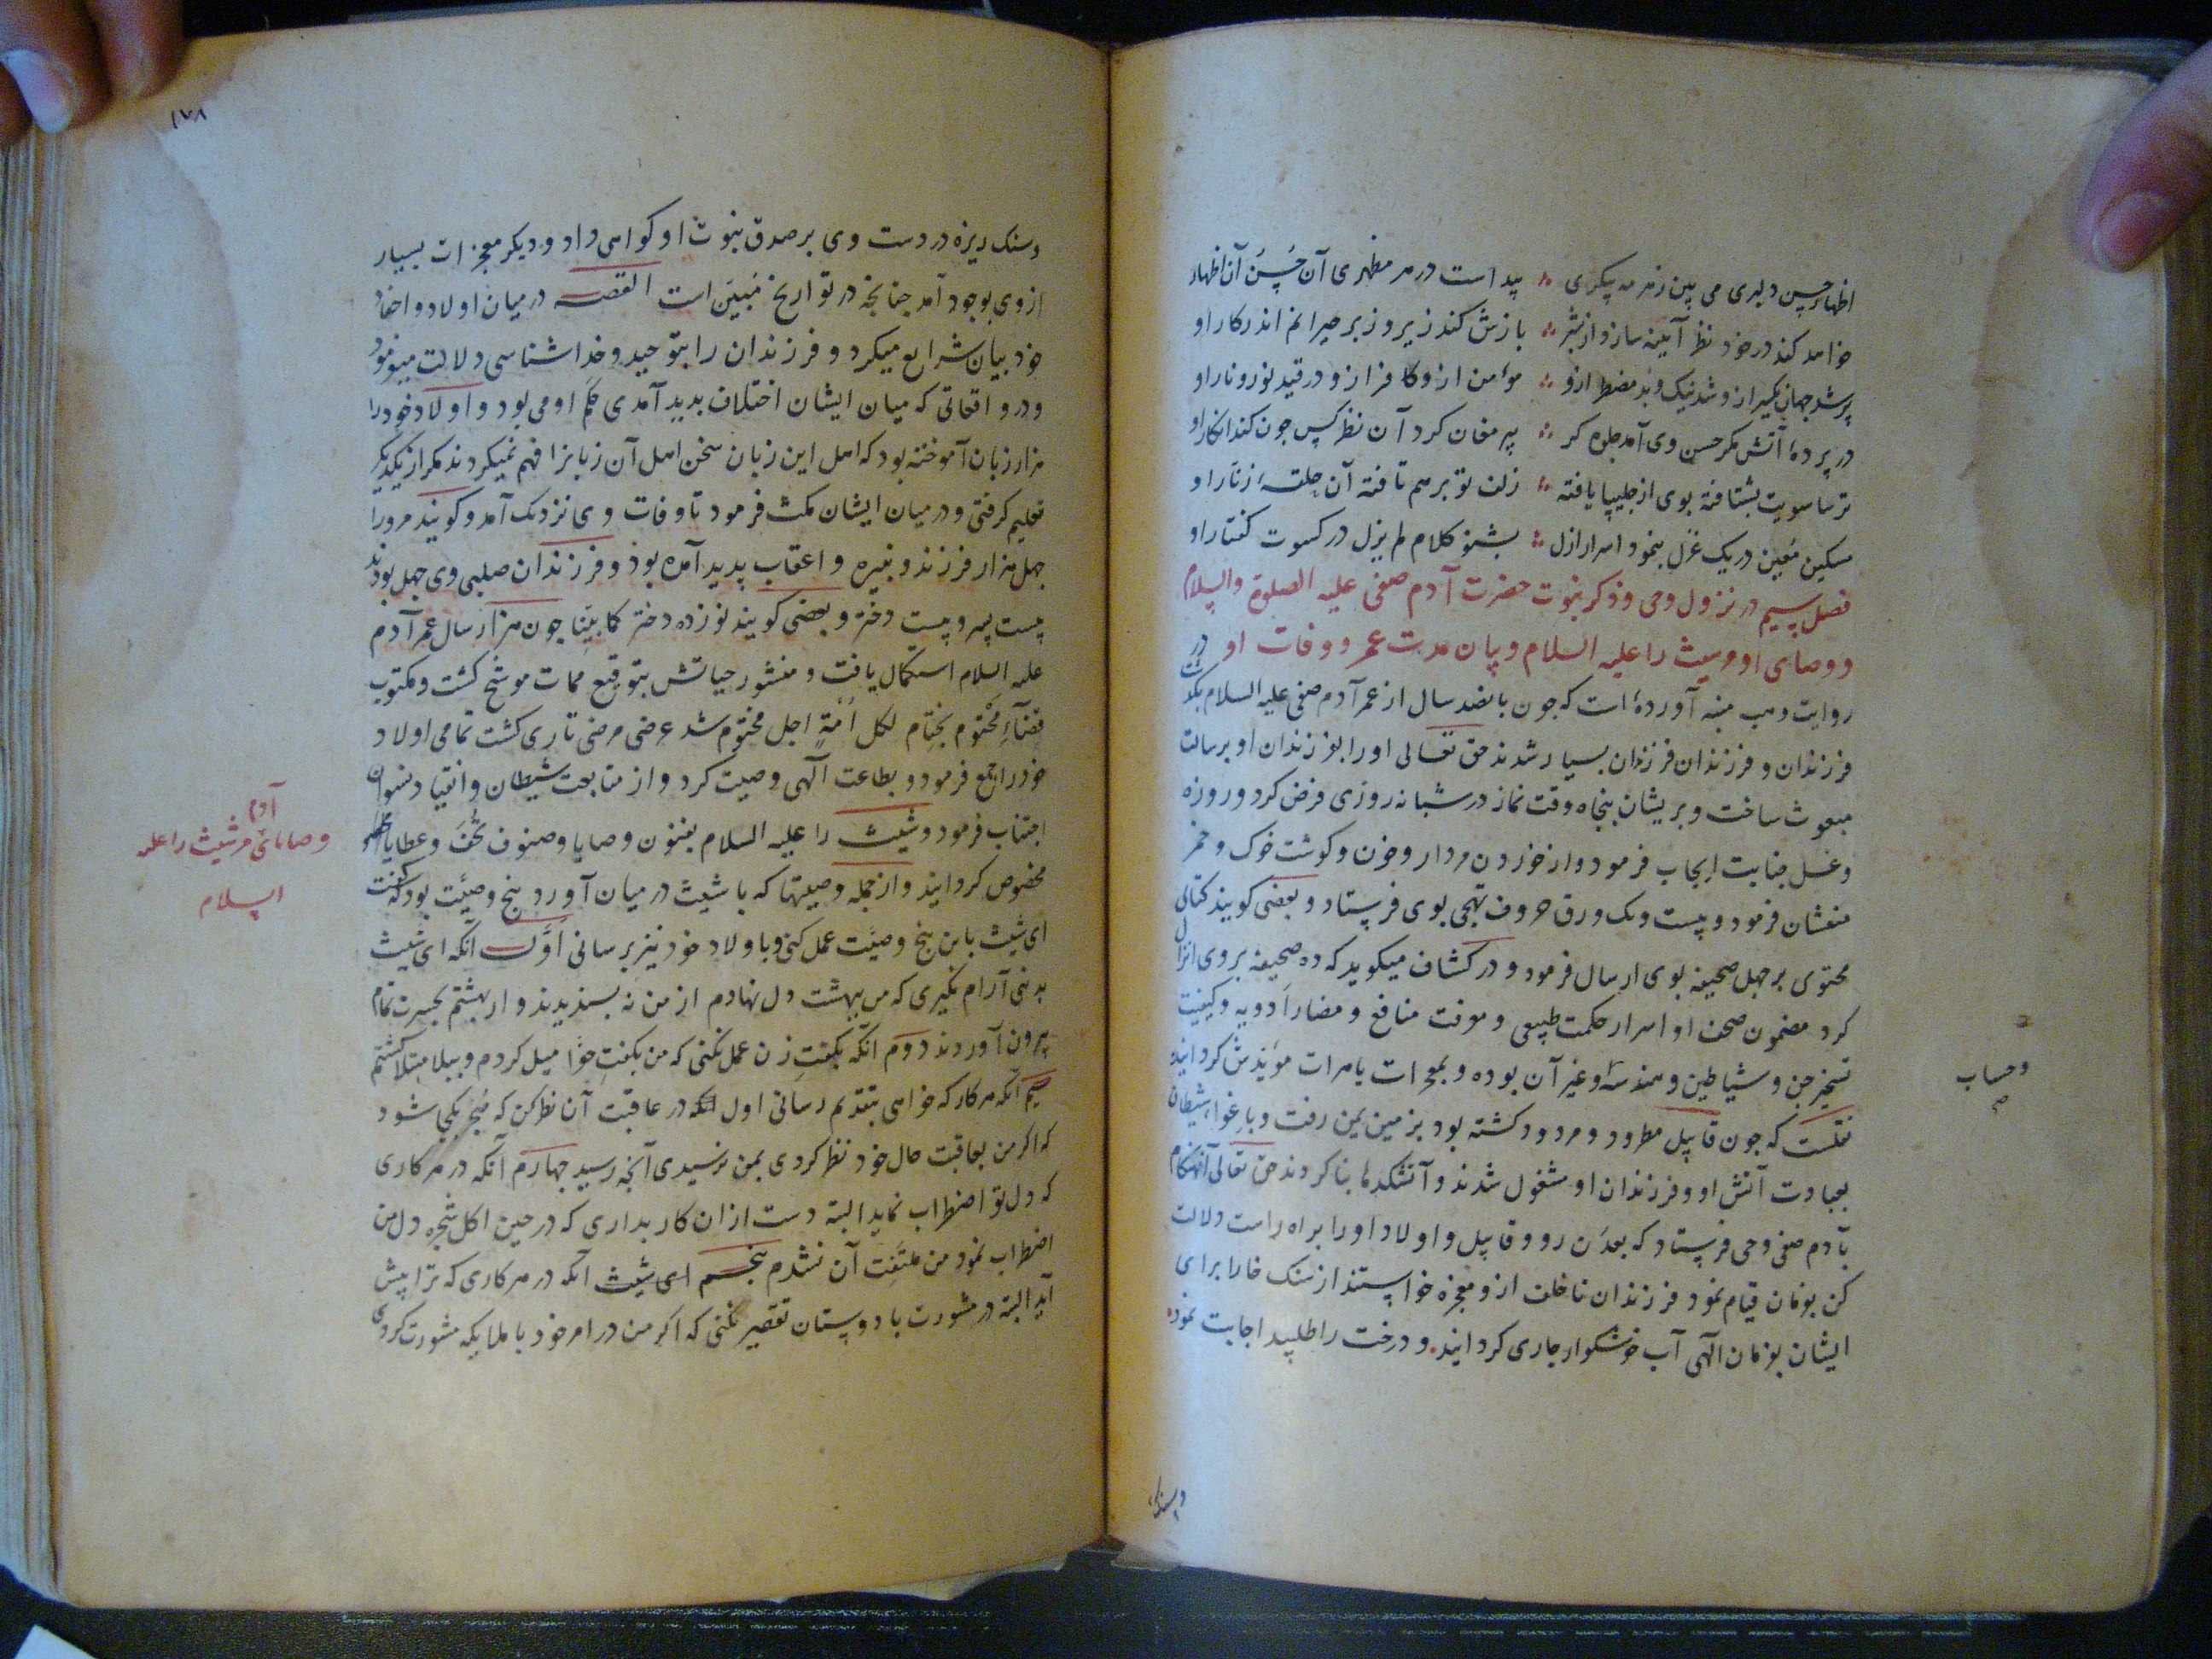 اظهار حسن دلبری می بین ز هر مه پیکری ∴ پیداست در هر مظهری آن حسن آن اظهار
خواهد کند در خود نظر آیینه سازد از بشر ∴ بازش کند زیر و زبر حیرانم اندر کار او
پر شد جهان یکسر ازو شد نیک و بد مضطر ازو ∴ مؤمن ازو کافر ازو در قید نور و نار او
در پردهٔ آتش مکر حسن وی آمد جلوه کر ∴ پیر مغان کرد آن نظر پس چون کند انکار او
ترسا سویت بشتافته بوی از چلیپا یافته ∴ زلف تو بر هم تافته آن حلقهٔ زنار او
مسکین معین در یک غزل بنمود اسرار ازل ∴ بشنو کلام لم یزل در کسوت کفتار او
فصل سیم در نزول وحی و ذکر نبوت حضرت آدم صفی علیه الصلوة والسلام
و وصای او مر شیث را علیه السلام و بیان مدت عمر و وفات او در
روایت وهب منبه آورده است که چون بانصد سال از عمر آدم صفی علیه السلام بکذشت
فرزندان و فرزندان فرزندان بسیار شدند حق تعالی او را بفرزندان او برسالت
مبعوث ساخت و بریشان پنجاه وقت نماز در شبانه روزی فرض کرد و روزه
و غسل جنابت ایجاب فرمود و از خوردن مردار و خون و کوشت خوک و خمر
منعشان فرمود و بیست و یک ورق حروف تهجی بوی فرستاد و بعضی کویند کتابی
محتوی بر چهل صحیفه بوی ارسال فرمود و در کشاف میکوید که ده صحیفه بروی انزال
کرد مضمون صحف او اسرار حکمت طبیعی و معرفت منافع و مضار ادویه و کیفیت
تسخیر جن و شیاطین و هندسه و غیر آن بوده و بمعجزات باهرات مؤیدش کردانید
و حساب
نقلست که چون قابیل مطرود و مردود کشته بود بزمین یمن رفت و باغواء شیطان
بعبادت آتش او و فرزندان او مشغول شدند و آتشکدها بنا کردند حق تعالی آنهنکام
بآدم صفی وحی فرستاد که بعدن رو و قابیل و اولاد او را براه راست دلالت
کن بفرمان قیام نمود فرزندان ناخلف ازو معجزه خواستند از سنک خارا برای
ایشان بفرمان الهی آب خوشکوار جاری کردانید و درخت را طلبید اجابت نمود
وسنک
۱۷۸
و سنک ریزه در دست وی بر صدق نبوت او کواهی داد و دیکر معجزات بسیار
از وی بوجود آمد چنانچه در تواریخ مبین است القصه در میان اولاد و احفاد
خود بیان شرایع میکرد و فرزندان را بتوحید و خداشناسی دلالت میفرمود
و در واقعاتی که میان ایشان اختلاف پدید آمدی حکم او می بود و اولاد خود را
هزار زبان آموخته بود که اهل این زبان سخن اهل آن زبانرا فهم نمیکردند مکر از یکدیکر
تعلیم کرفتی و در میان ایشان مکث فرمود تا وفات وی نزدیک آمد و کویند مرورا
چهل هزار فرزند و نبیره و اعقاب پدید آمده بود و فرزندان صلبی وی چهل بودند
بیست پسر و بیست دختر و بعضی کویند نوزده دختر کما بینا چون هزار سال عمر آدم
علیه السلام استکمال یافت و منشور حیاتش بتوقیع ممات موشح کشت و مکتوب
قضآء محتوم بختام لکل امة اجل مختوم شد عرضی مرضی تاری کشت تمامی اولاد
خود را جمع فرمود و بطاعت الهی وصیت کرد و از متابعت شیطان و انقیاد نسوان
اجتناب فرمود و شیث را علیه السلام بفنون وصایا و صنوف تحف و عطایا
مخصوص کردانید و از جمله وصیتها که با شیث در میان آورد پنج وصیت بود که کفت
وصایای آدم مر شیث را علیه
السلام
ای شیث باین پنج وصیت عمل کنی و باولاد خود نیز برسانی اول آنکه ای شیث
بدنیی آرام نکیری که من ببهشت دل نهادم از من نه بسندیدند و از بهشتم بحسرت تمام
بیرون آوردند دوم آنکه بکفت زن عمل نکنی که من بکفت حوا میل کردم و ببلا مبتلا کشتم
سیم آنکه هر کار که خواهی بتقدیم رسانی اول در عاقبت آن نظر کن که منجر بکجا شود
که اکر من بعاقبت حال خود نظر کردی بمن نرسیدی آنچه رسید چهارم آنکه در هر کاری
که دل تو اضطراب نماید البته دست ازان کار بداری که در حین اکل شجره دل من
اضطراب نمود من ملتفت آن نشدم پنجم ای شیث آنکه در هر کاری که ترا پیش
آید البته در مشورت با دوستان تقصیر نکنی که اکر من در امر خود با ملایکه مشورت کردمی